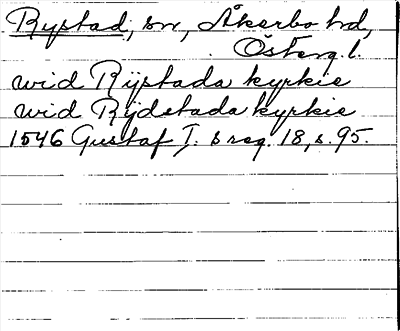 Rystad, sn, Åkerbo hd,
Österg. l.
wid Rijstada kyrkie
wid Rijdstada kyrkie
1546 Gustaf I:s reg. 18, s. 95.